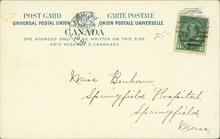 POST CARD CARTE POSTALE
UNIVERSAL POSTAL UNION UNION POSTALE UNIVERSELLE
CANADA
THE ADDRESS ONLY TO BE WRITTEN ON THIS SIDE.
CÔTÉ RÉSERVÉ À L'ADRESSE.
Miss Benham
Springfield Hospital,
Springfield,
Mass.